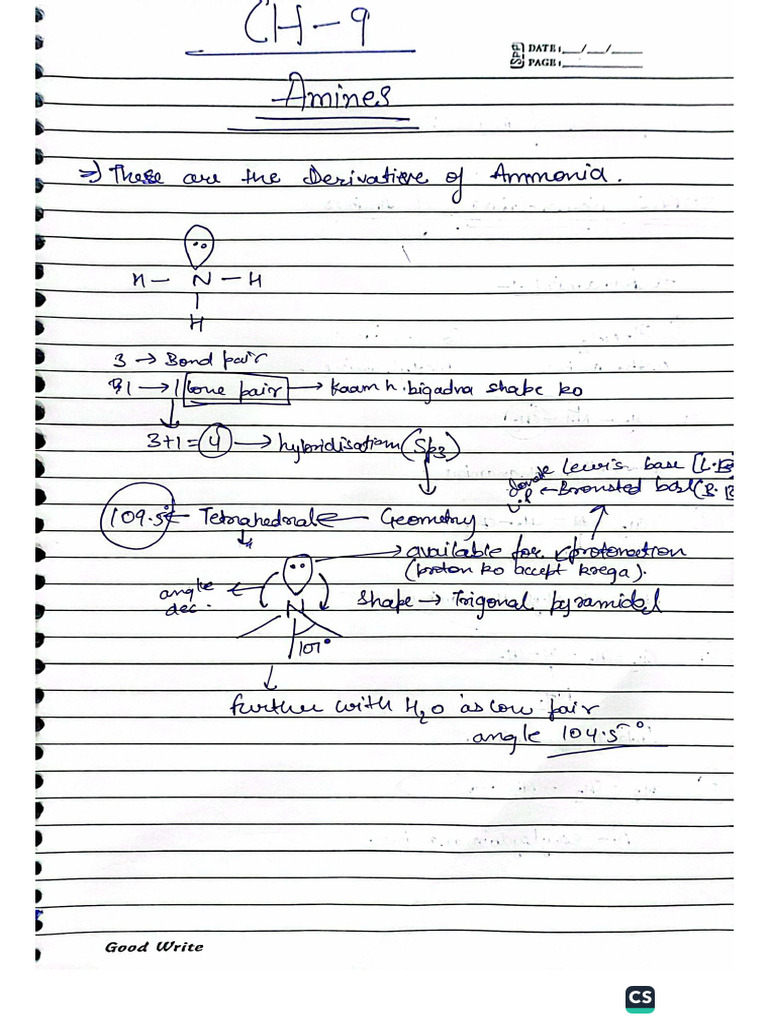 CH-9
DATE: __/__/____
PAGE: ________
Amines
⇒ These are the Derivative of Ammonia.
H – N – H
|
H
3 → Bond pair
1 → 1 lone pair → kaam h. bigadna shape ko
3+1 = 4 → hybridisation (Sp3)
donate l.p
Lewis base [L.B
← Bronsted base (B. B
109.5° ← Tetrahedral ← Geometry.
→ available for protonation
(proton ko accept krega).
angle dec. ←
N
Shape → Trigonal pyramidal
107°
further with H2O as lone pair
angle 104.5°
Good Write
CS